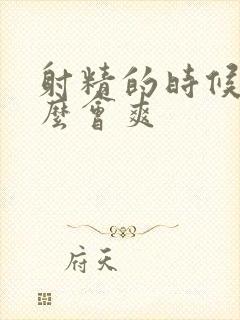 射精的時候
麼會爽
府天